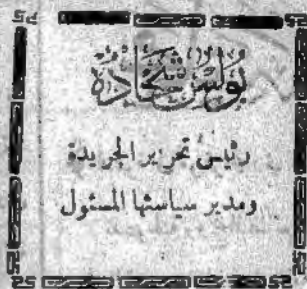 بولس شحادة
رئيس تحرير الجريدة
ومدير سياستها المسئول